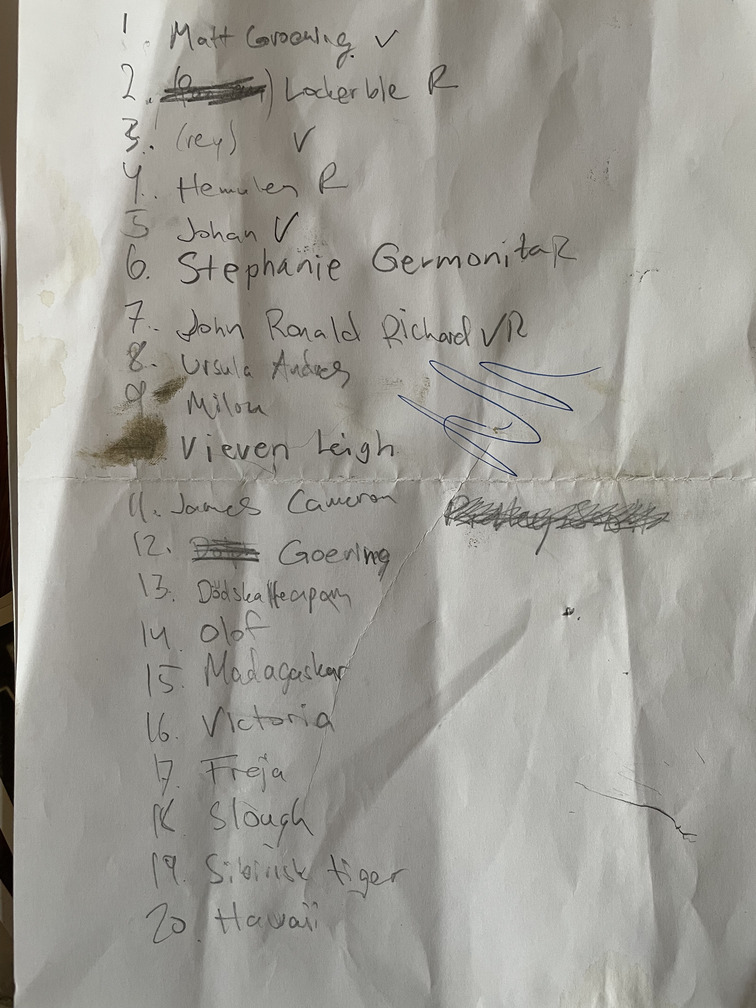 1. Matt Groening V
2. Lockerbie R
3. (rey) V
4. Hemulen R
5 Johan V
6. Stephanie Germonita R
7. John Ronald Richard VR
8. Ursula Andres
9 Milou
Vieven Leigh
11. James Cameron
12. Goering
13.
14 Olof
15. Madagaskar
16. Victoria
17. Freja
18 Slough
19. Sibirisk tiger
20. Hawaii